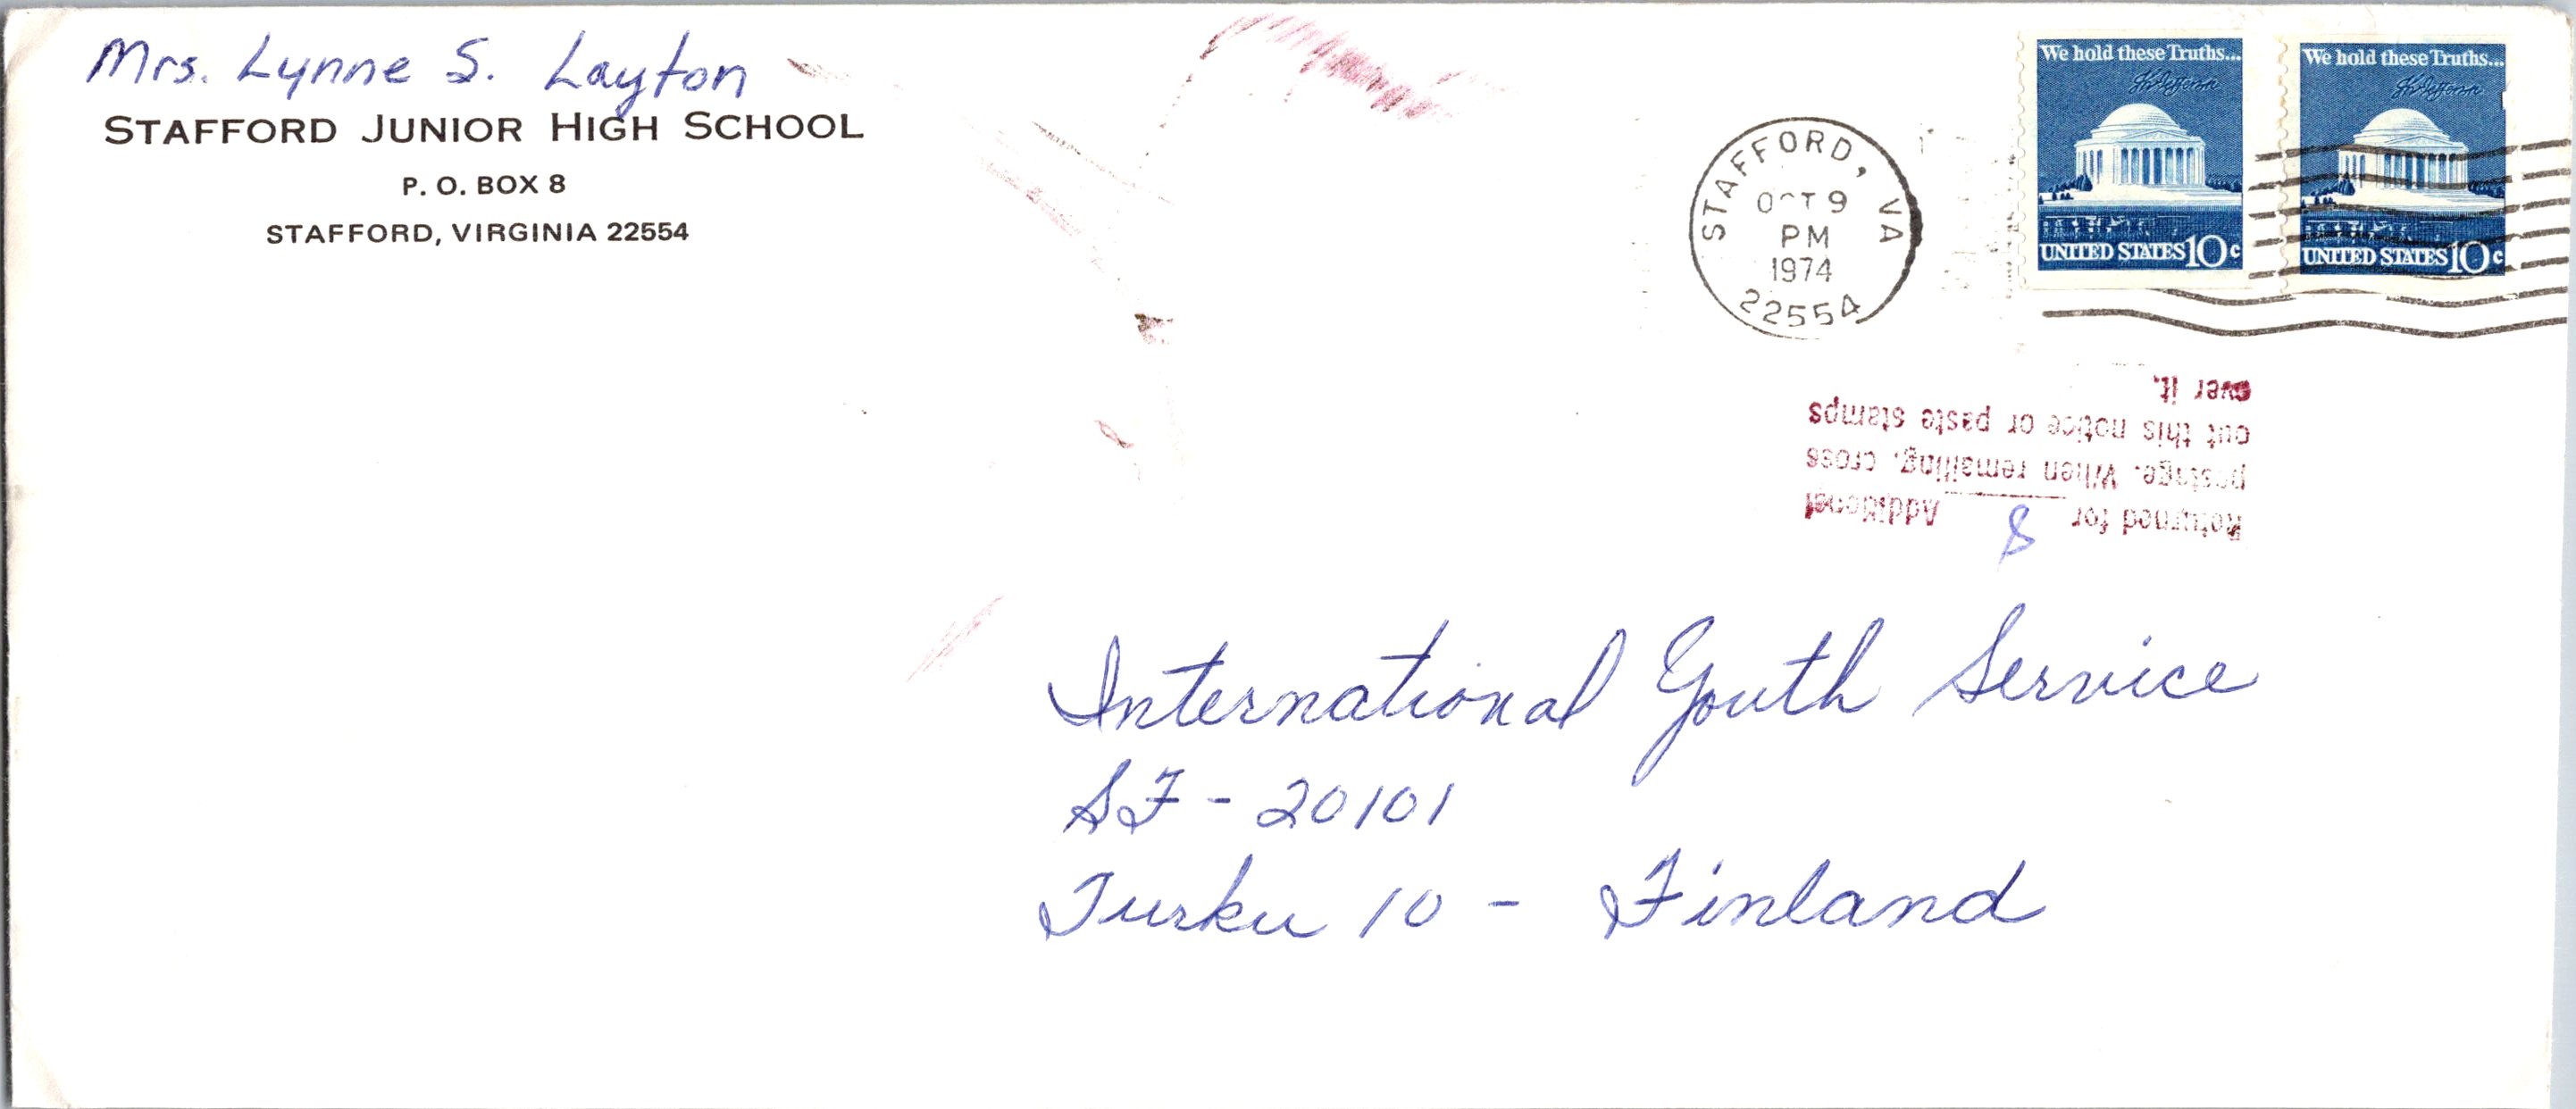 Mrs. Lynne S. Layton
STAFFORD JUNIOR HIGH SCHOOL
P. O. BOX 8
STAFFORD, VIRGINIA 22554
STAFFORD, VA
OCT 9
PM
1974
22554
We hold these Truths...
Th Jefferson
UNITED STATES 10c
We hold these Truths...
Th Jefferson
UNITED STATES 10c
Returned for 8 Additional
postage. When remailing, cross
out this notice or paste stamps
over it.
International Youth Service
SF - 20101
Turku 10 - Finland